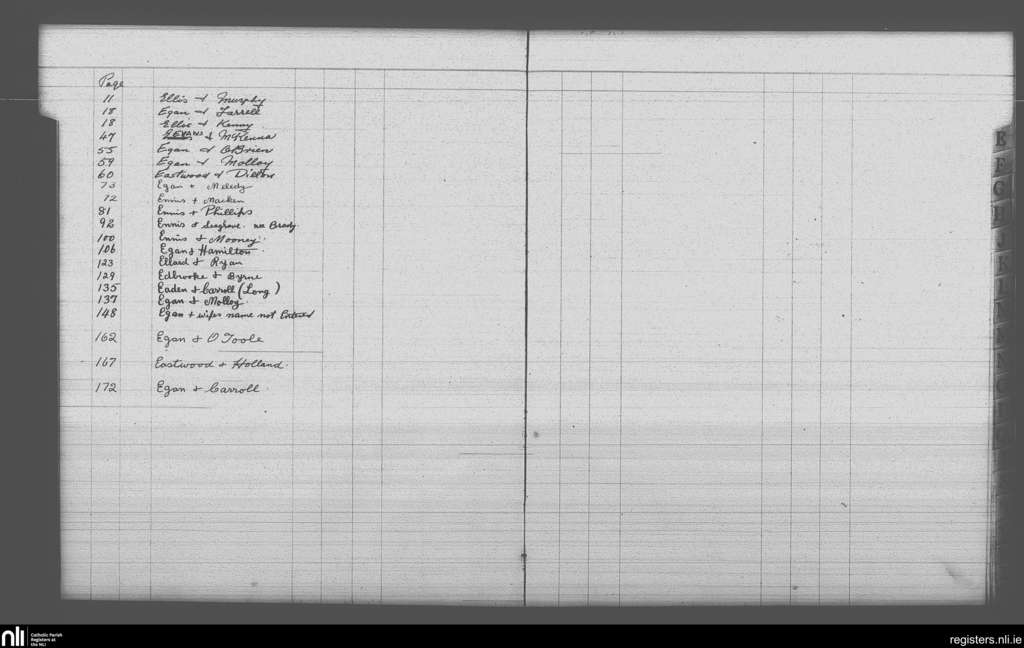 Page
11 Ellis & Murphy
18 Egan & Farrell
18 Ellis & Kenny
47 EVANS & McKenna
55 Egan & O'Brien
59 Egan & Molloy
60 Eastwood & Dillon
73 Egan & Meledy
72 Ennis + Macken
81 Ennis & Phillips
92 Ennis & Seagrave. nee Brady.
100 Ennis & Mooney.
106 Egan & Hamilton.
123 Ellard & Ryan
129 Edbrooke & Byrne
135 Eaden & Carroll (Long)
137 Egan & Molloy.
148 Egan + wifes name not Entered
162 Egan & O Toole
167 Eastwood & Holland.
172 Egan & Carroll.
E
F
G
H
J
K
L
M
nli Catholic Parish
Registers at
the NLI
registers.nli.ie